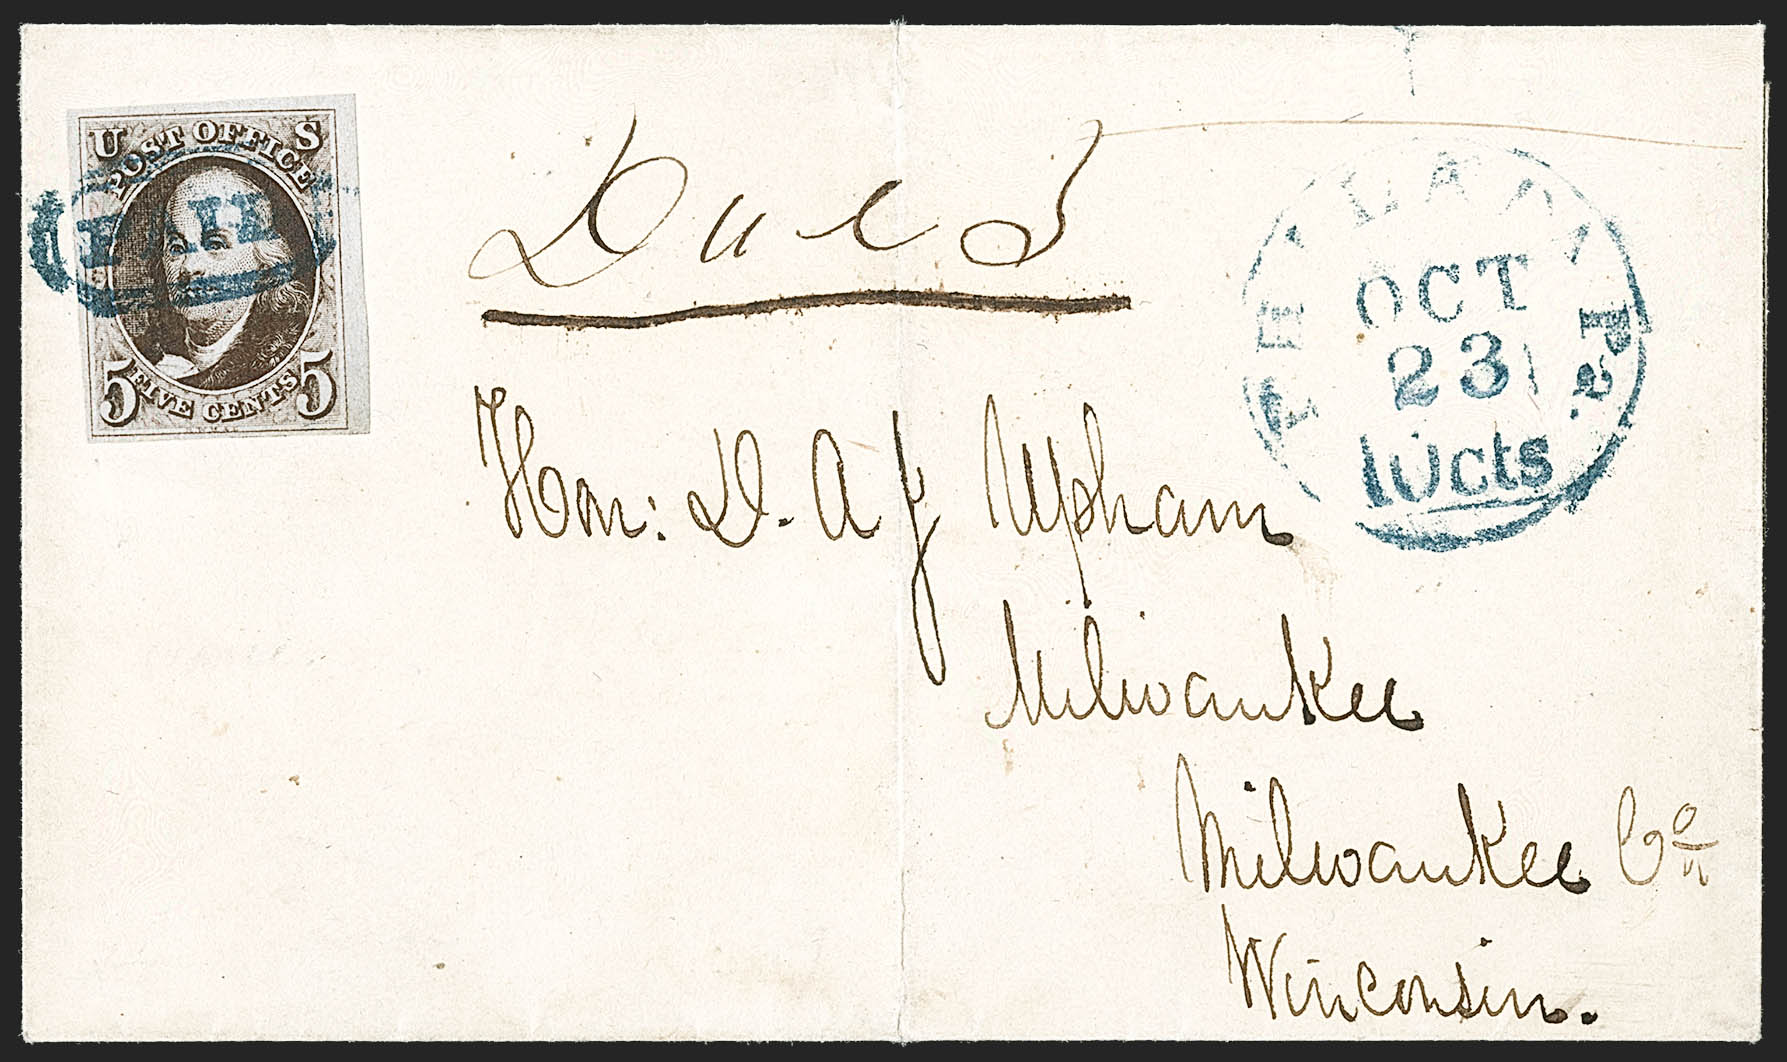 U S
POST OFFICE
PAID
FIVE CENTS
5 5
Due 5
PHILADA Pa.
OCT
23
10cts
Hon: D. A J Upham
Milwaukee
Milwaukee Co
Winconsin.